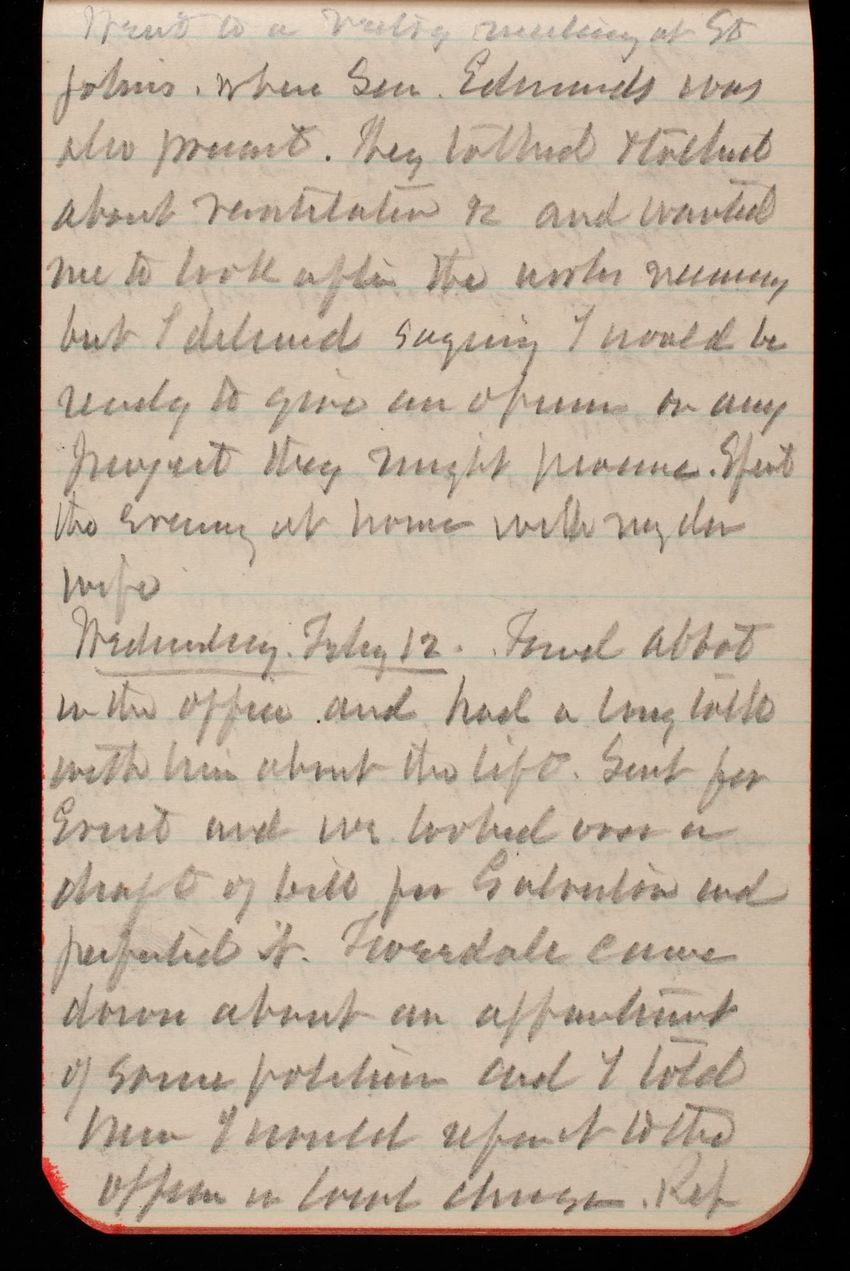 Went to a vestry meeting at St
Johns. where Gen. Edmunds was
also present. They talked & talked
about ventilation &c and wanted
me to look after the works necessary
but I declined saying I would be
ready to give an opinion on any
project they might propose. Spent
the evening at home with my dear
wife
Wednesday. Feby 12. Found Abbot
in the office and had a long talk
with him about the lift. Sent for
Ernst and we looked over a
draft of bill for Galveston and
perfected it. Tweedale came
down about an appointment
of some position and I told
him I would report to the
officer in local charge. Rep